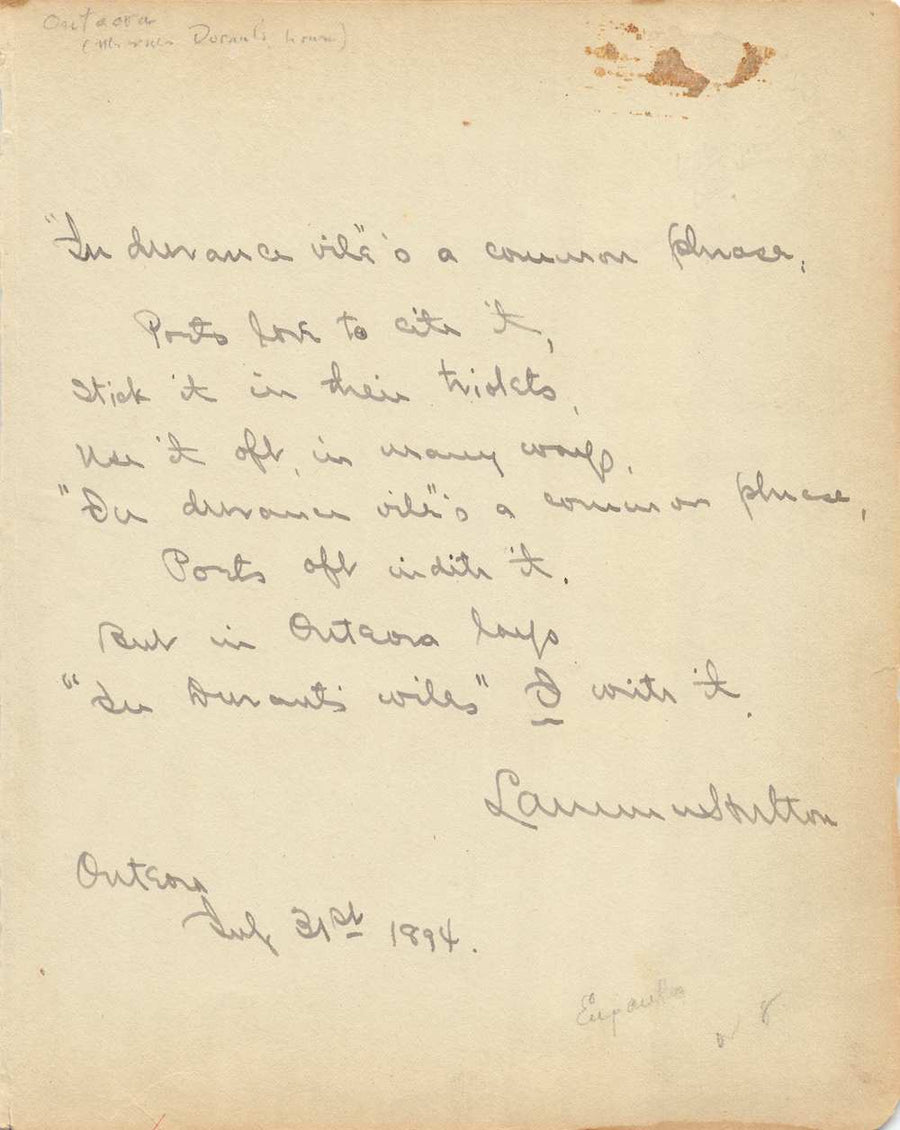 Onteora
Durant's house)
"In durance vile"'s a common phrase,
Poets love to cite it,
Stick it in their triolets,
Use it oft, in many ways.
"In durance vile"'s a common phrase,
Poets oft indite it.
But in Onteora lays
"In Durant's wiles" I write it.
Onteora
July 31st 1894.